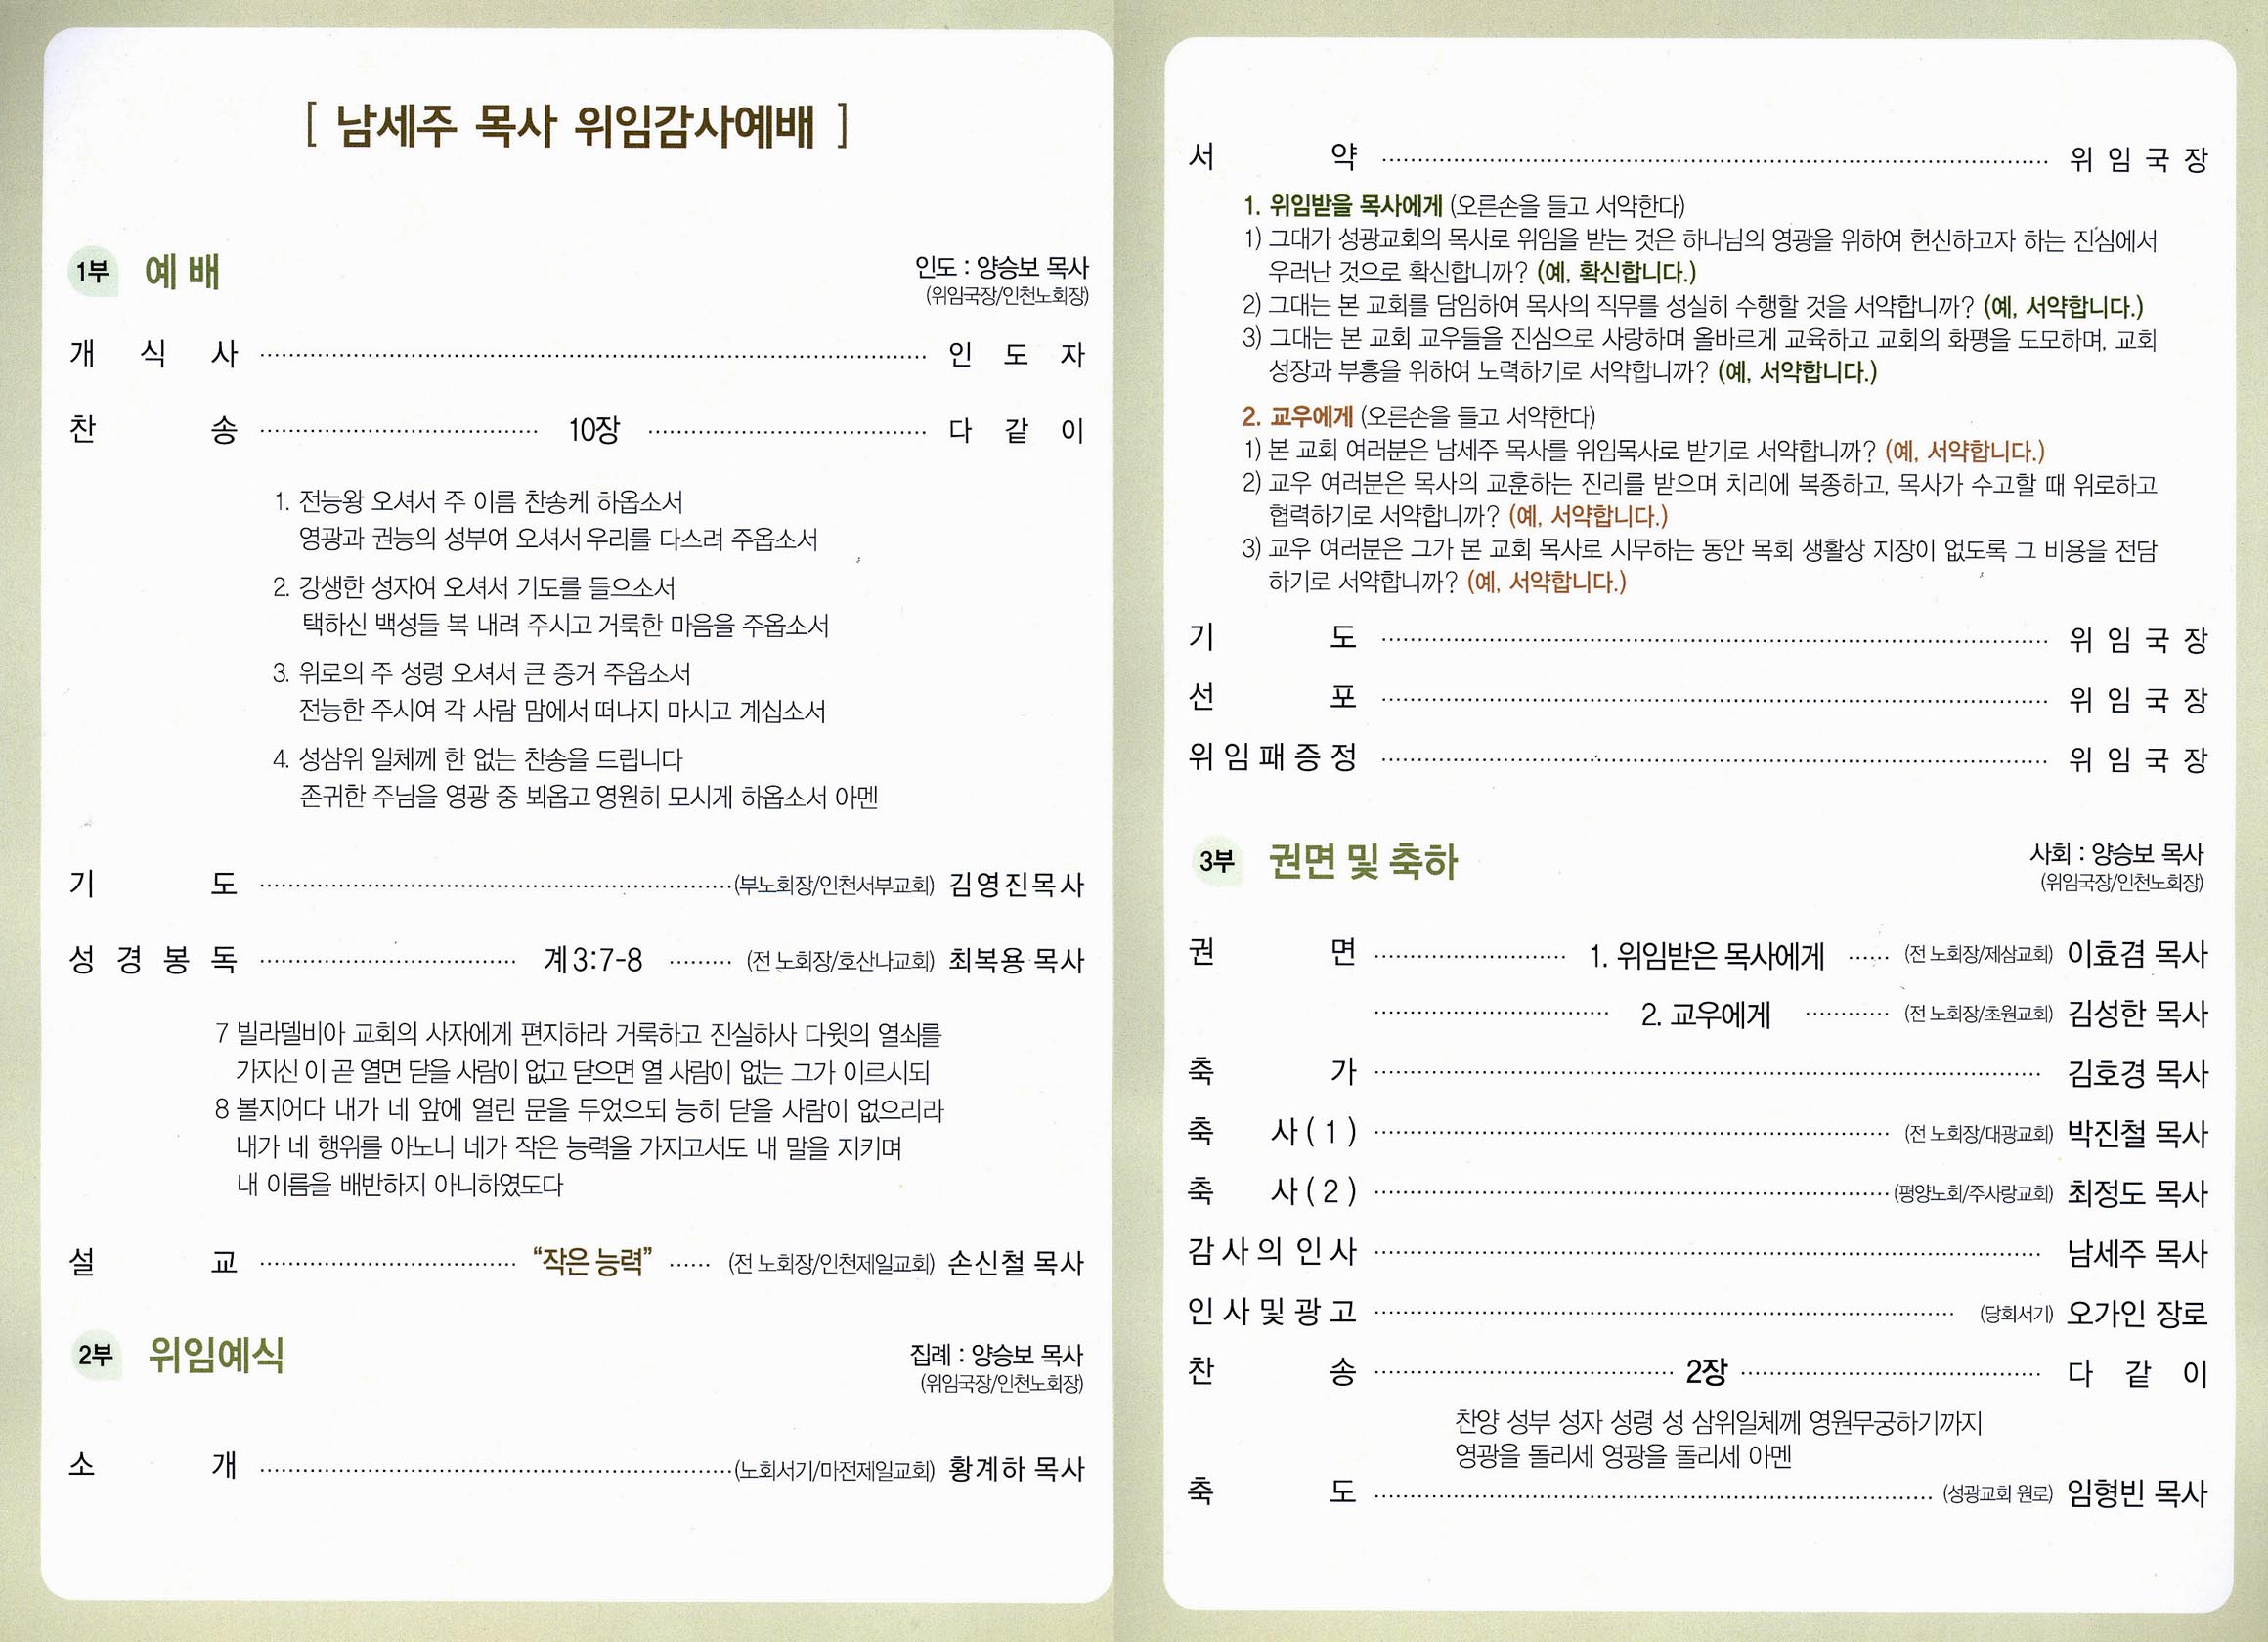 [ 남세주 목사 위임감사예배 ]
1부 예 배 인도 : 양승보 목사
(위임국장/인천노회장)
개 식 사 인 도 자
찬 송 10장 다 같 이
1. 전능왕 오셔서 주 이름 찬송케 하옵소서
영광과 권능의 성부여 오셔서 우리를 다스려 주옵소서
2. 강생한 성자여 오셔서 기도를 들으소서
택하신 백성들 복 내려 주시고 거룩한 마음을 주옵소서
3. 위로의 주 성령 오셔서 큰 증거 주옵소서
전능한 주시여 각 사람 맘에서 떠나지 마시고 계십소서
4. 성삼위 일체께 한 없는 찬송을 드립니다
존귀한 주님을 영광 중 뵈옵고 영원히 모시게 하옵소서 아멘
기 도 (부노회장/인천서부교회) 김영진목사
성 경 봉 독 계3:7-8 (전 노회장/호산나교회) 최복용 목사
7 빌라델비아 교회의 사자에게 편지하라 거룩하고 진실하사 다윗의 열쇠를
가지신 이 곧 열면 닫을 사람이 없고 닫으면 열 사람이 없는 그가 이르시되
8 볼지어다 내가 네 앞에 열린 문을 두었으되 능히 닫을 사람이 없으리라
내가 네 행위를 아노니 네가 작은 능력을 가지고서도 내 말을 지키며
내 이름을 배반하지 아니하였도다
설 교 “작은 능력” (전 노회장/인천제일교회) 손신철 목사
2부 위임예식 집례 : 양승보 목사
(위임국장/인천노회장)
소 개 (노회서기/마전제일교회) 황계하 목사
서 약 위 임 국 장
1. 위임받을 목사에게 (오른손을 들고 서약한다)
1) 그대가 성광교회의 목사로 위임을 받는 것은 하나님의 영광을 위하여 헌신하고자 하는 진심에서
우러난 것으로 확신합니까? (예, 확신합니다.)
2) 그대는 본 교회를 담임하여 목사의 직무를 성실히 수행할 것을 서약합니까? (예, 서약합니다.)
3) 그대는 본 교회 교우들을 진심으로 사랑하며 올바르게 교육하고 교회의 화평을 도모하며, 교회
성장과 부흥을 위하여 노력하기로 서약합니까? (예, 서약합니다.)
2. 교우에게 (오른손을 들고 서약한다)
1) 본 교회 여러분은 남세주 목사를 위임목사로 받기로 서약합니까? (예, 서약합니다.)
2) 교우 여러분은 목사의 교훈하는 진리를 받으며 치리에 복종하고, 목사가 수고할 때 위로하고
협력하기로 서약합니까? (예, 서약합니다.)
3) 교우 여러분은 그가 본 교회 목사로 시무하는 동안 목회 생활상 지장이 없도록 그 비용을 전담
하기로 서약합니까? (예, 서약합니다.)
기 도 위 임 국 장
선 포 위 임 국 장
위 임 패 증 정 위 임 국 장
3부 권면 및 축하 사회 : 양승보 목사
(위임국장/인천노회장)
권 면 1. 위임받은 목사에게 (전 노회장/제삼교회) 이효겸 목사
2. 교우에게 (전 노회장/초원교회) 김성한 목사
축 가 김호경 목사
축 사 ( 1 ) (전 노회장/대광교회) 박진철 목사
축 사 ( 2 ) (평양노회/주사랑교회) 최정도 목사
감 사 의 인 사 남세주 목사
인 사 및 광 고 (당회서기) 오가인 장로
찬 송 2장 다 같 이
찬양 성부 성자 성령 성 삼위일체께 영원무궁하기까지
영광을 돌리세 영광을 돌리세 아멘
축 도 (성광교회 원로) 임형빈 목사